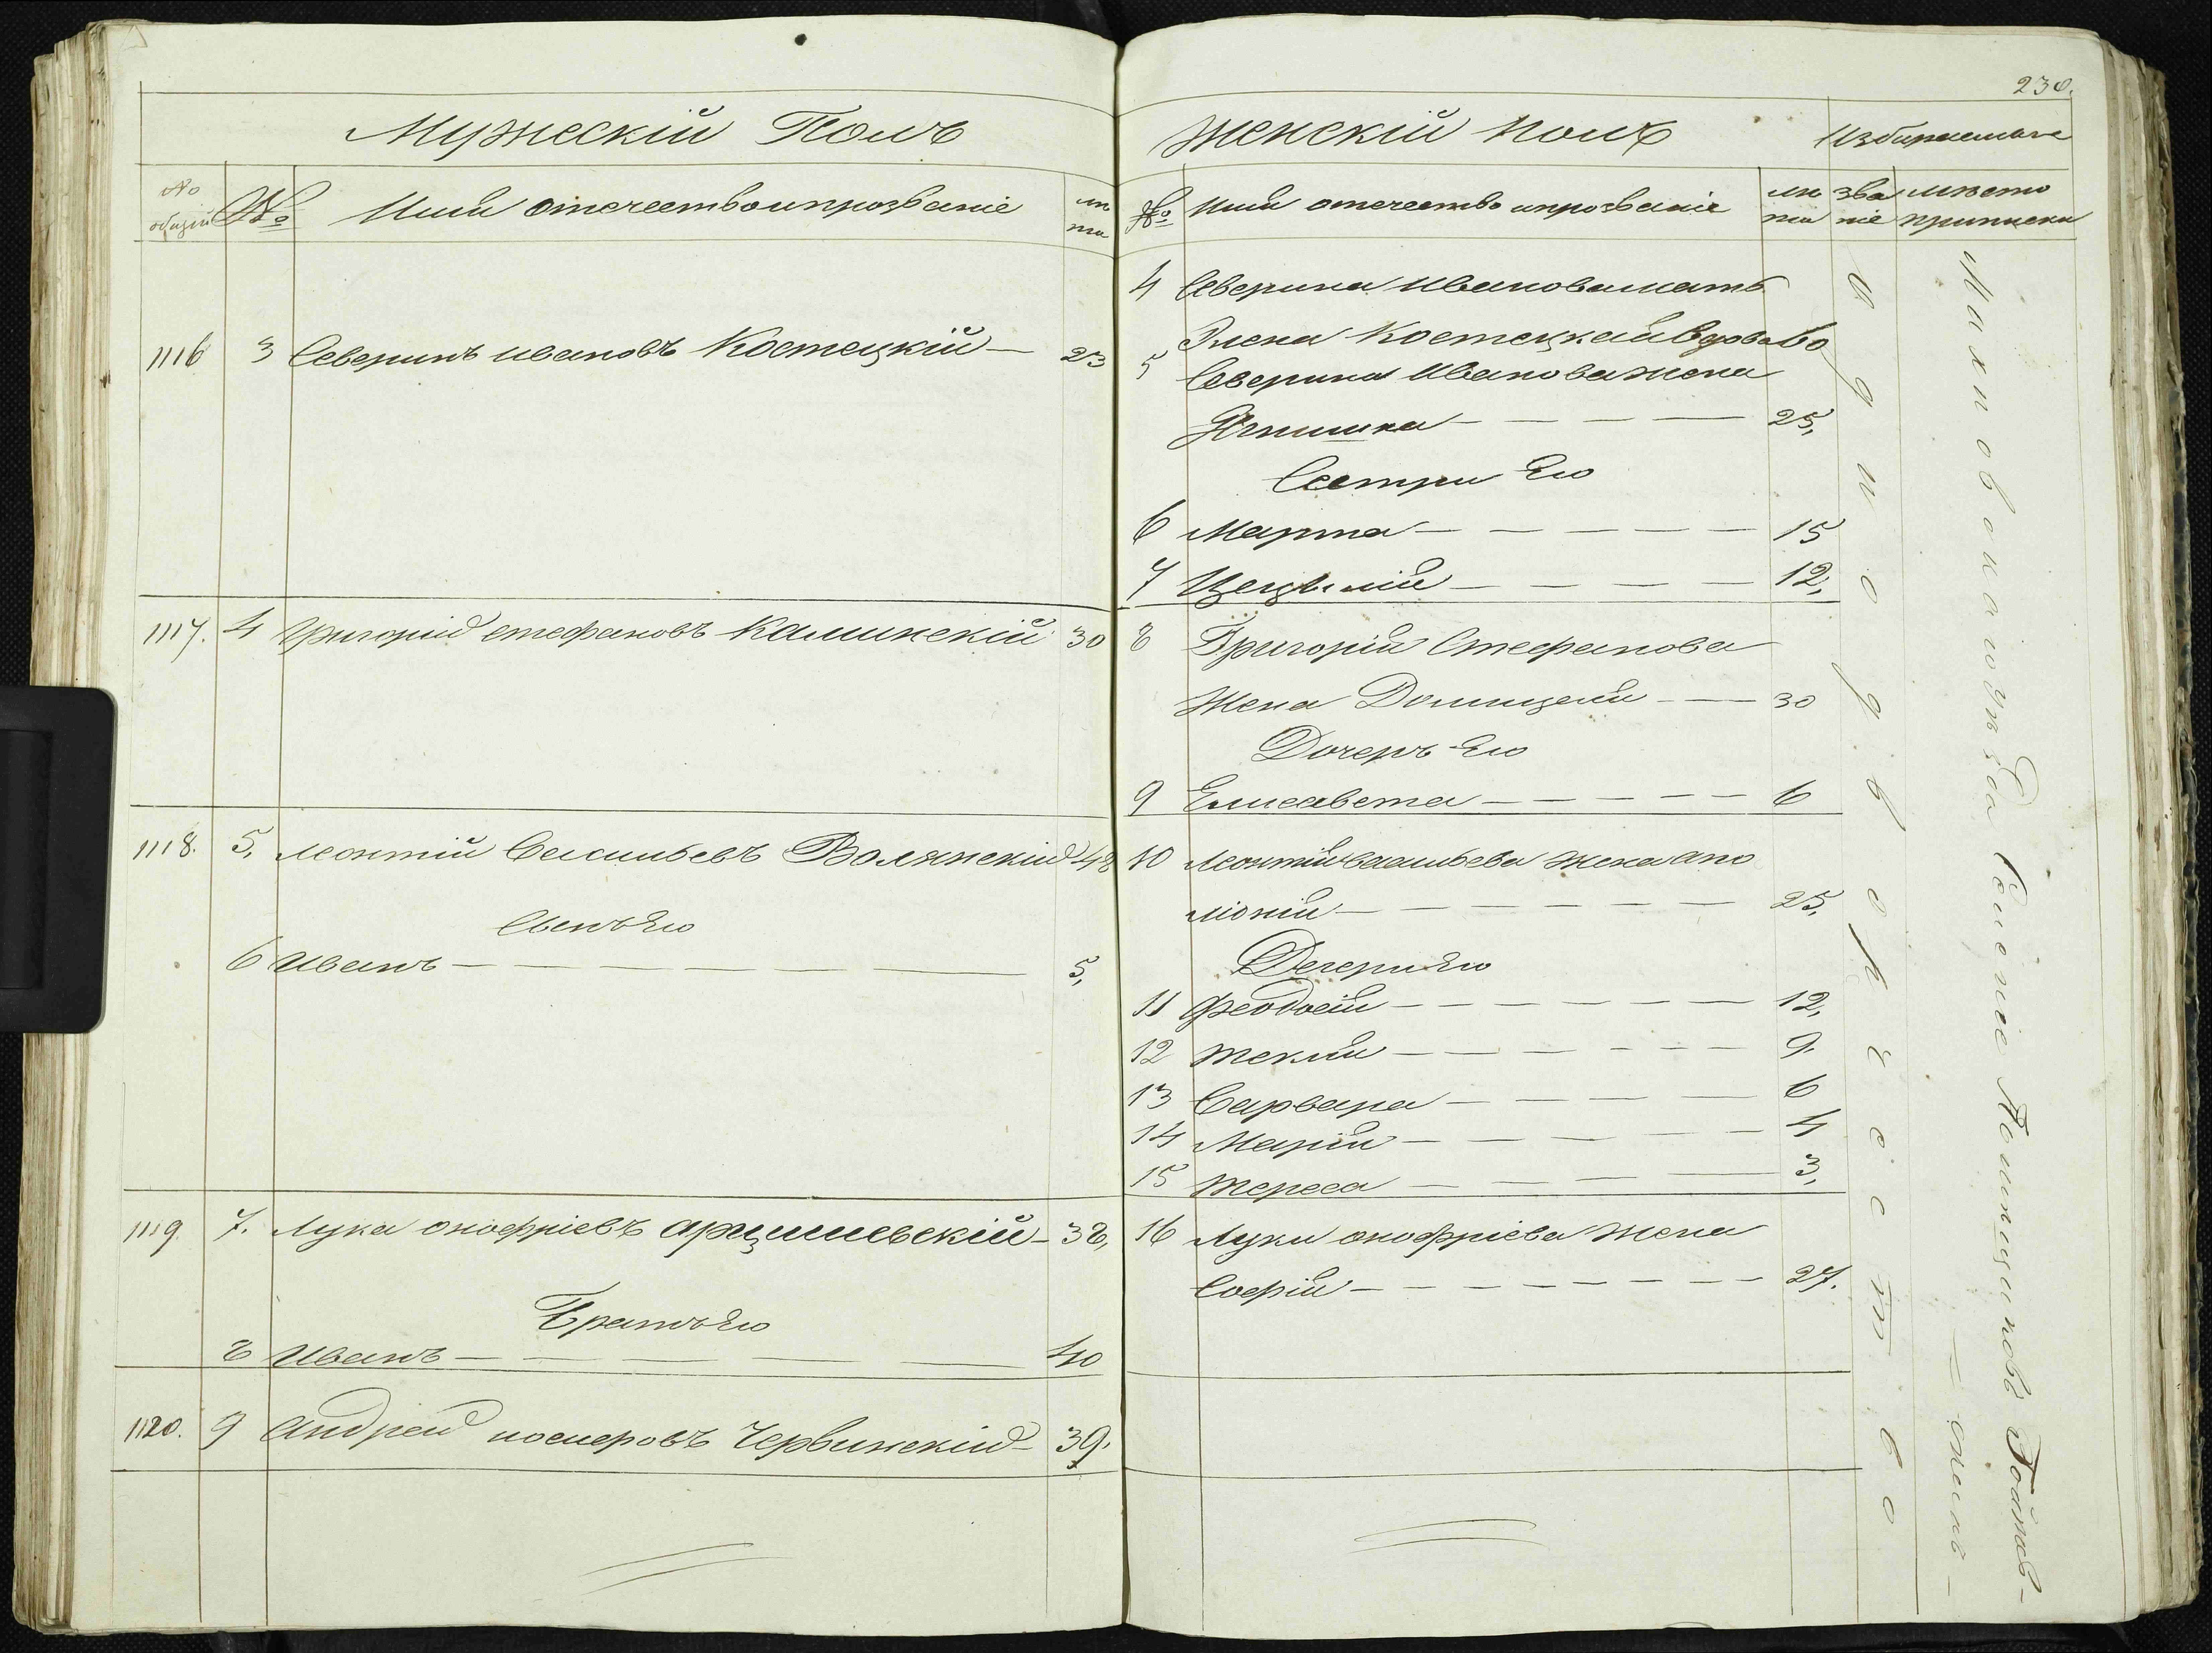 230.
Мужескій Полъ
№ общій № Имя отечество и прозваніе лѣта
1116 3 Северинъ Ивановъ Костецкій — 23
1117. 4 Григорій Стефановъ Калинскій 30
1118. 5, Леонтій Васильевъ Волянскій 48
Сынъ Его
6 Иванъ — 5,
1119. 7. Лука Онофріевъ Арцишевскій — 38,
Братъ Его
8 Иванъ — 40
1120. 9 Андрей Іосифовъ Червинскій — 39.
Женскій Полъ Избираемыя
№ Имя отечество и прозваніе лѣта званіе мѣсто приписки
4 Северина Иванова мать
Элена Костецкая вдова 60
5 Северина Иванова жена
— — — 25,
Сестри Его
6 Марта — — — 15
7 Цецылія — — — 12,
8 Григорія Стефанова
Жена Домицеля — 30
Дочерь Его
9 Елисавета — — — 6
10 Леонтія Васильева жена Апо
лонія — — — 25,
Дочери Его
11 Феодосія — — — 12,
12 Текля — — — 9.
13 Варвара — — — 6
14 Марія — — — 4
15 Тереса — — — 3,
16 Луки Онофріева Жена
Софія — — — 27.
однодворчество
Махновскаго уѣзда Селеніе Помѣщиковъ